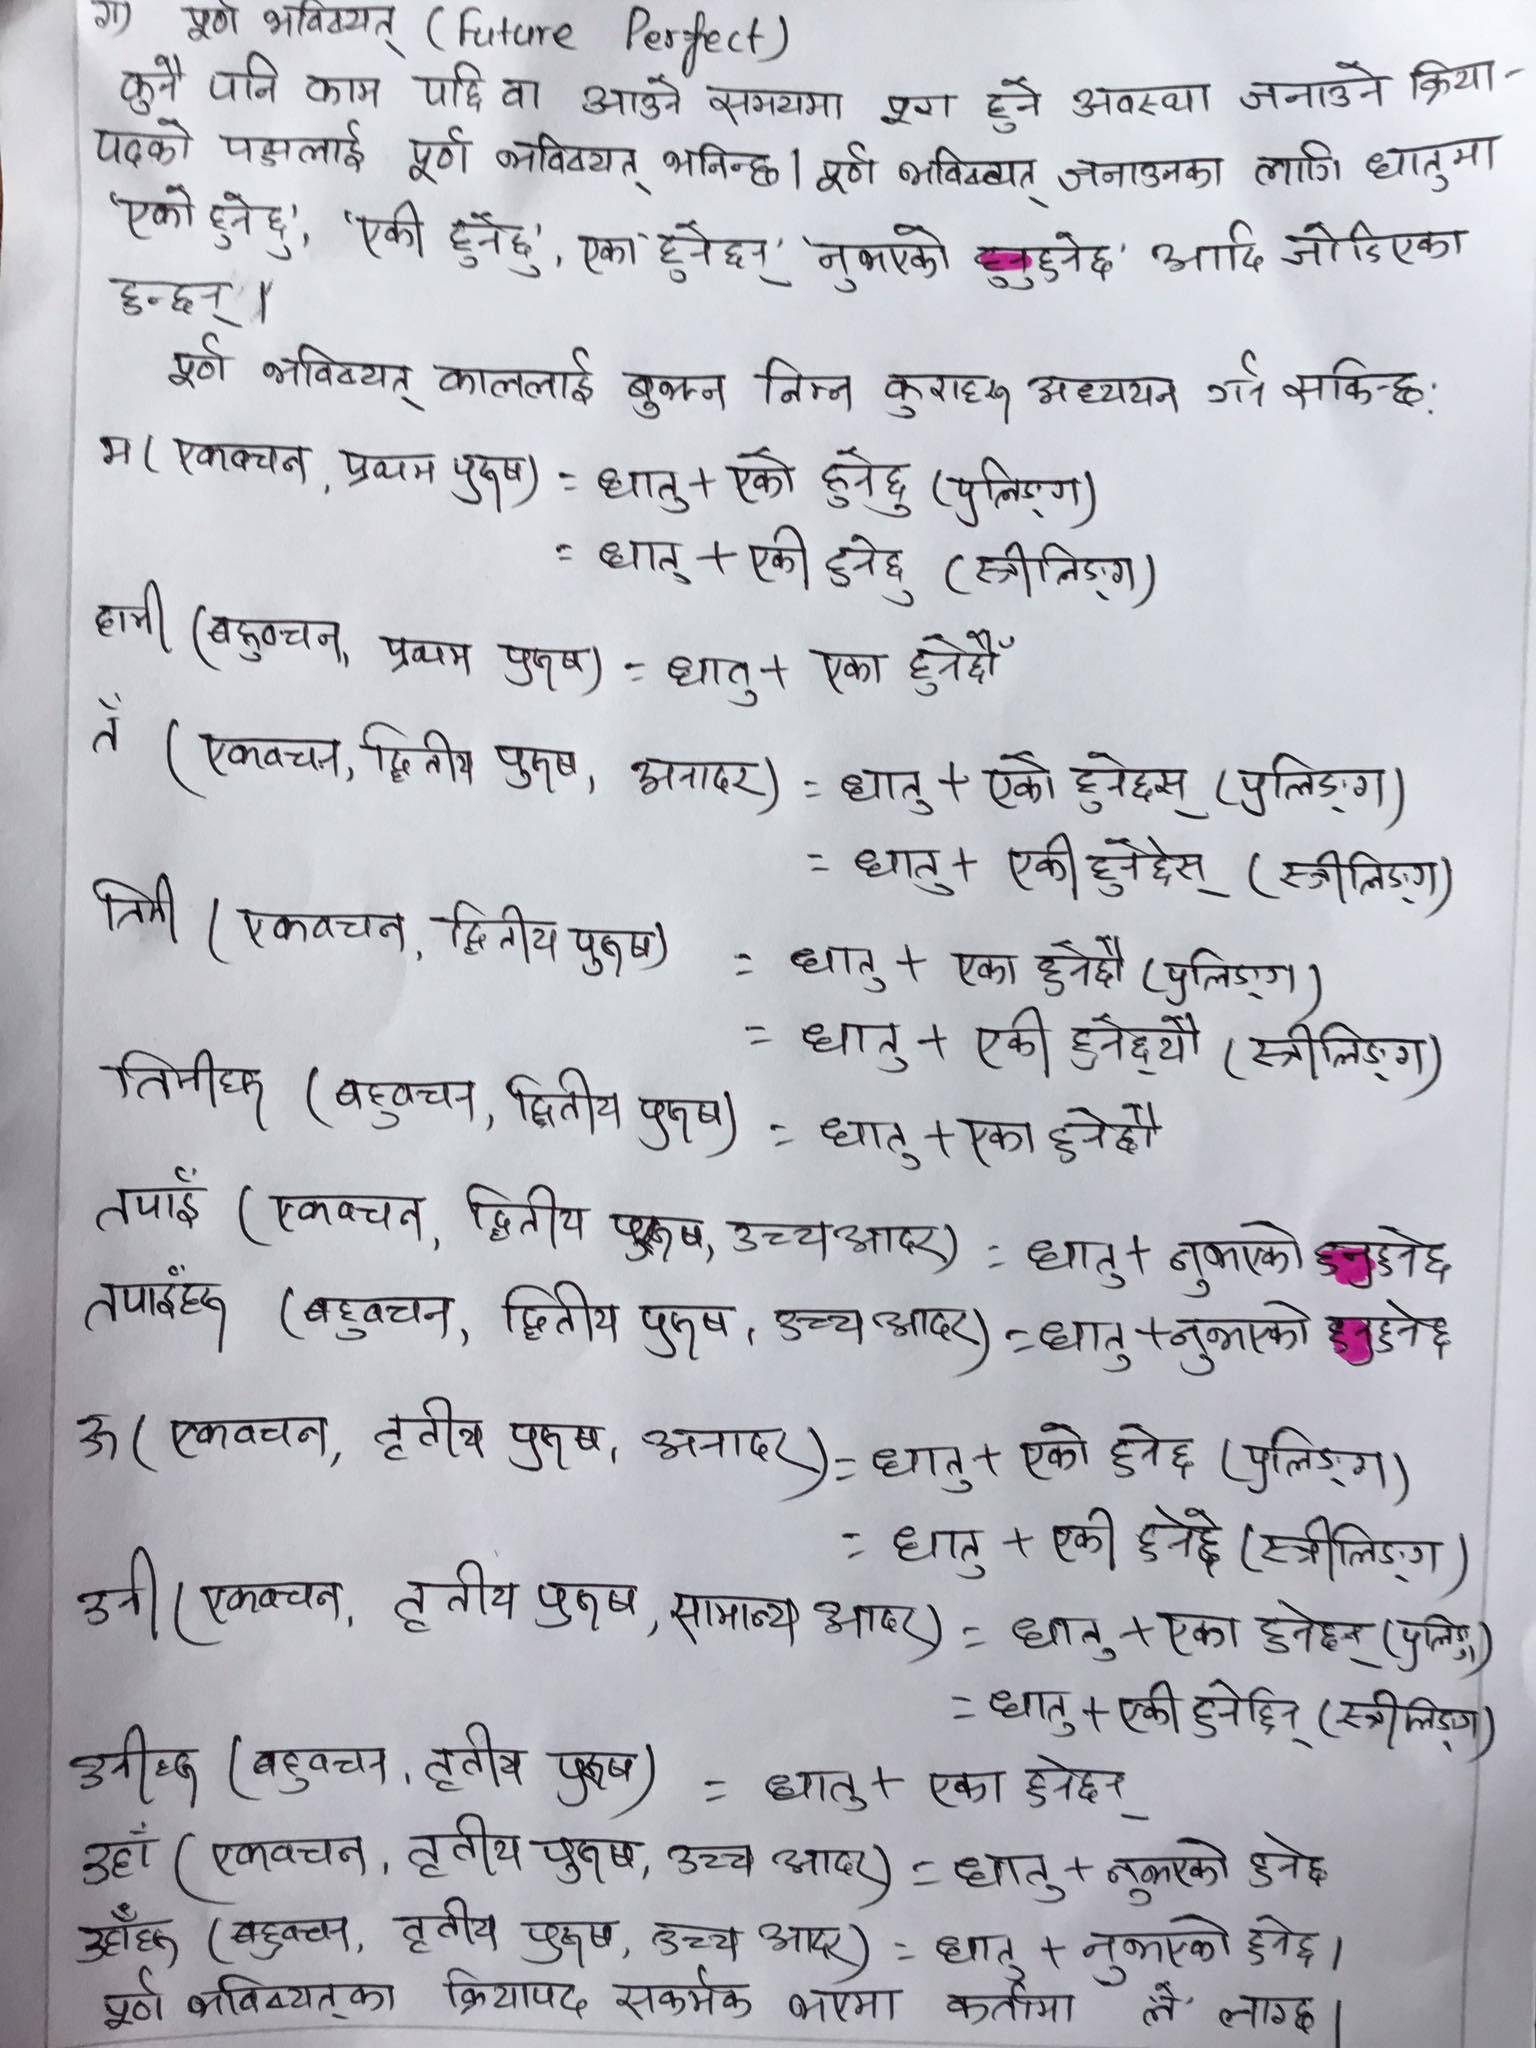 ग) पूर्ण भविष्यत् (Future Perfect)
कुनै पनि काम पछि वा आउने समयमा पूरा हुने अवस्था जनाउने क्रिया-
पदको पक्षलाई पूर्ण भविष्यत् भनिन्छ। पूर्ण भविष्यत् जनाउनका लागि धातुमा
'एको हुनेछु', 'एकी हुनेछु', एका हुनेछन्' 'नुभएको हुनुहुनेछ' आदि जोडिएका
हुन्छन्।
पूर्ण भविष्यत् काललाई बुझ्न निम्न कुराहरू अध्ययन गर्न सकिन्छ:
म (एकवचन, प्रथम पुरुष) = धातु + एको हुनेछु (पुलिङ्ग)
= धातु + एकी हुनेछु (स्त्रीलिङ्ग)
हामी (बहुवचन, प्रथम पुरुष) = धातु + एका हुनेछौँ
तँ (एकवचन, द्वितीय पुरुष, अनादर) = धातु + एको हुनेछस् (पुलिङ्ग)
= धातु + एकी हुनेछेस् (स्त्रीलिङ्ग)
तिमी (एकवचन, द्वितीय पुरुष) = धातु + एका हुनेछौ (पुलिङ्ग)
= धातु + एकी हुनेछ्यौ (स्त्रीलिङ्ग)
तिमीहरू (बहुवचन, द्वितीय पुरुष) = धातु + एका हुनेछौ
तपाईं (एकवचन, द्वितीय पुरुष, उच्च आदर) = धातु + नुभएको हुनुहुनेछ
तपाईंहरू (बहुवचन, द्वितीय पुरुष, उच्च आदर) = धातु + नुभएको हुनुहुनेछ
ऊ (एकवचन, तृतीय पुरुष, अनादर) = धातु + एको हुनेछ (पुलिङ्ग)
= धातु + एकी हुनेछे (स्त्रीलिङ्ग)
उनी (एकवचन, तृतीय पुरुष, सामान्य आदर) = धातु + एका हुनेछन् (पुलिङ्ग)
= धातु + एकी हुनेछिन् (स्त्रीलिङ्ग)
उनीहरू (बहुवचन, तृतीय पुरुष) = धातु + एका हुनेछन्
उहाँ (एकवचन, तृतीय पुरुष, उच्च आदर) = धातु + नुभएको हुनेछ
उहाँहरू (बहुवचन, तृतीय पुरुष, उच्च आदर) = धातु + नुभएको हुनेछ।
पूर्ण भविष्यत्का क्रियापद सकर्मक भएमा कर्तामा 'ले' लाग्छ।